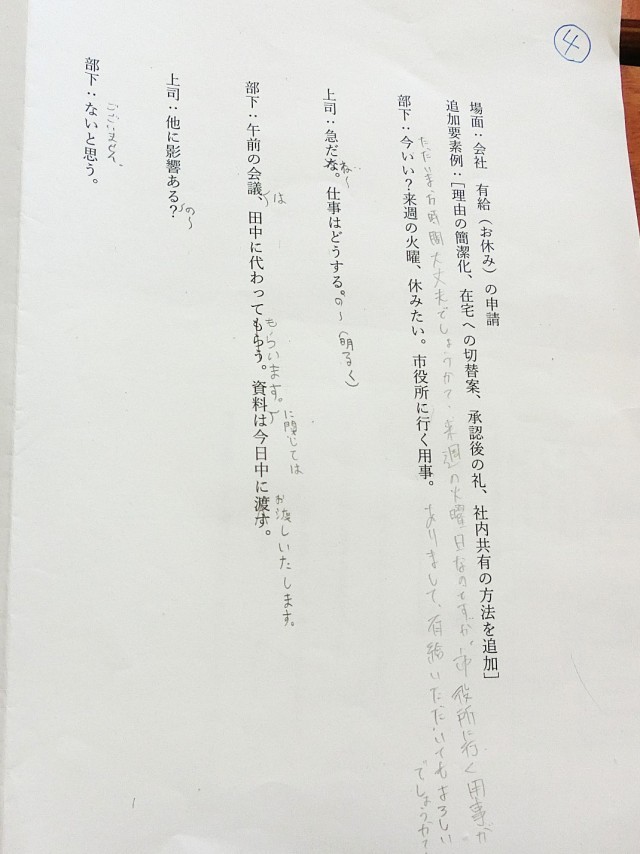 ④
場面：会社　有給（お休み）の申請
追加要素例：［理由の簡潔化、在宅への切替案、承認後の礼、社内共有の方法を追加］
ただいまお時間大丈夫でしょうか？来週の火曜日なのですが、市役所に行く用事が
部下：今いい？来週の火曜、休みたい。市役所に行く用事。
ありまして、有給いただいてもよろしい
でしょうか？
上司：急だな。仕事はどうする。
ね〜
の〜（明るく）
部下：午前の会議、田中に代わってもらう。資料は今日中に渡す。
は
もらいます。
に関しては
お渡しいたします。
上司：他に影響ある？
の〜
部下：ないと思う。
ございません。